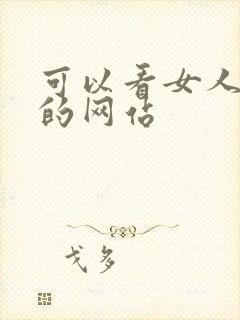 可以看女人
的网占
戈多